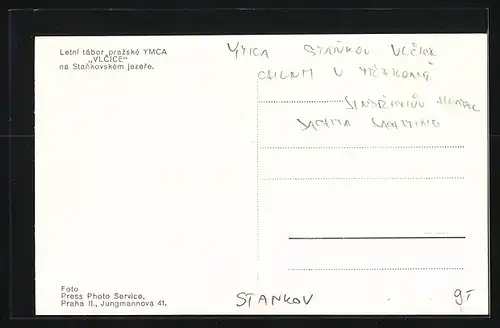 Letní tábor pražské YMCA
„VLČICE"
na Staňkovském jezeře.
YMCA STAŇKOV VLČICE
CHLUM U TŘEBONĚ
JINDŘICHŮV HRADEC
Foto
Press Photo Service,
Praha II., Jungmannova 41.
STANKOV